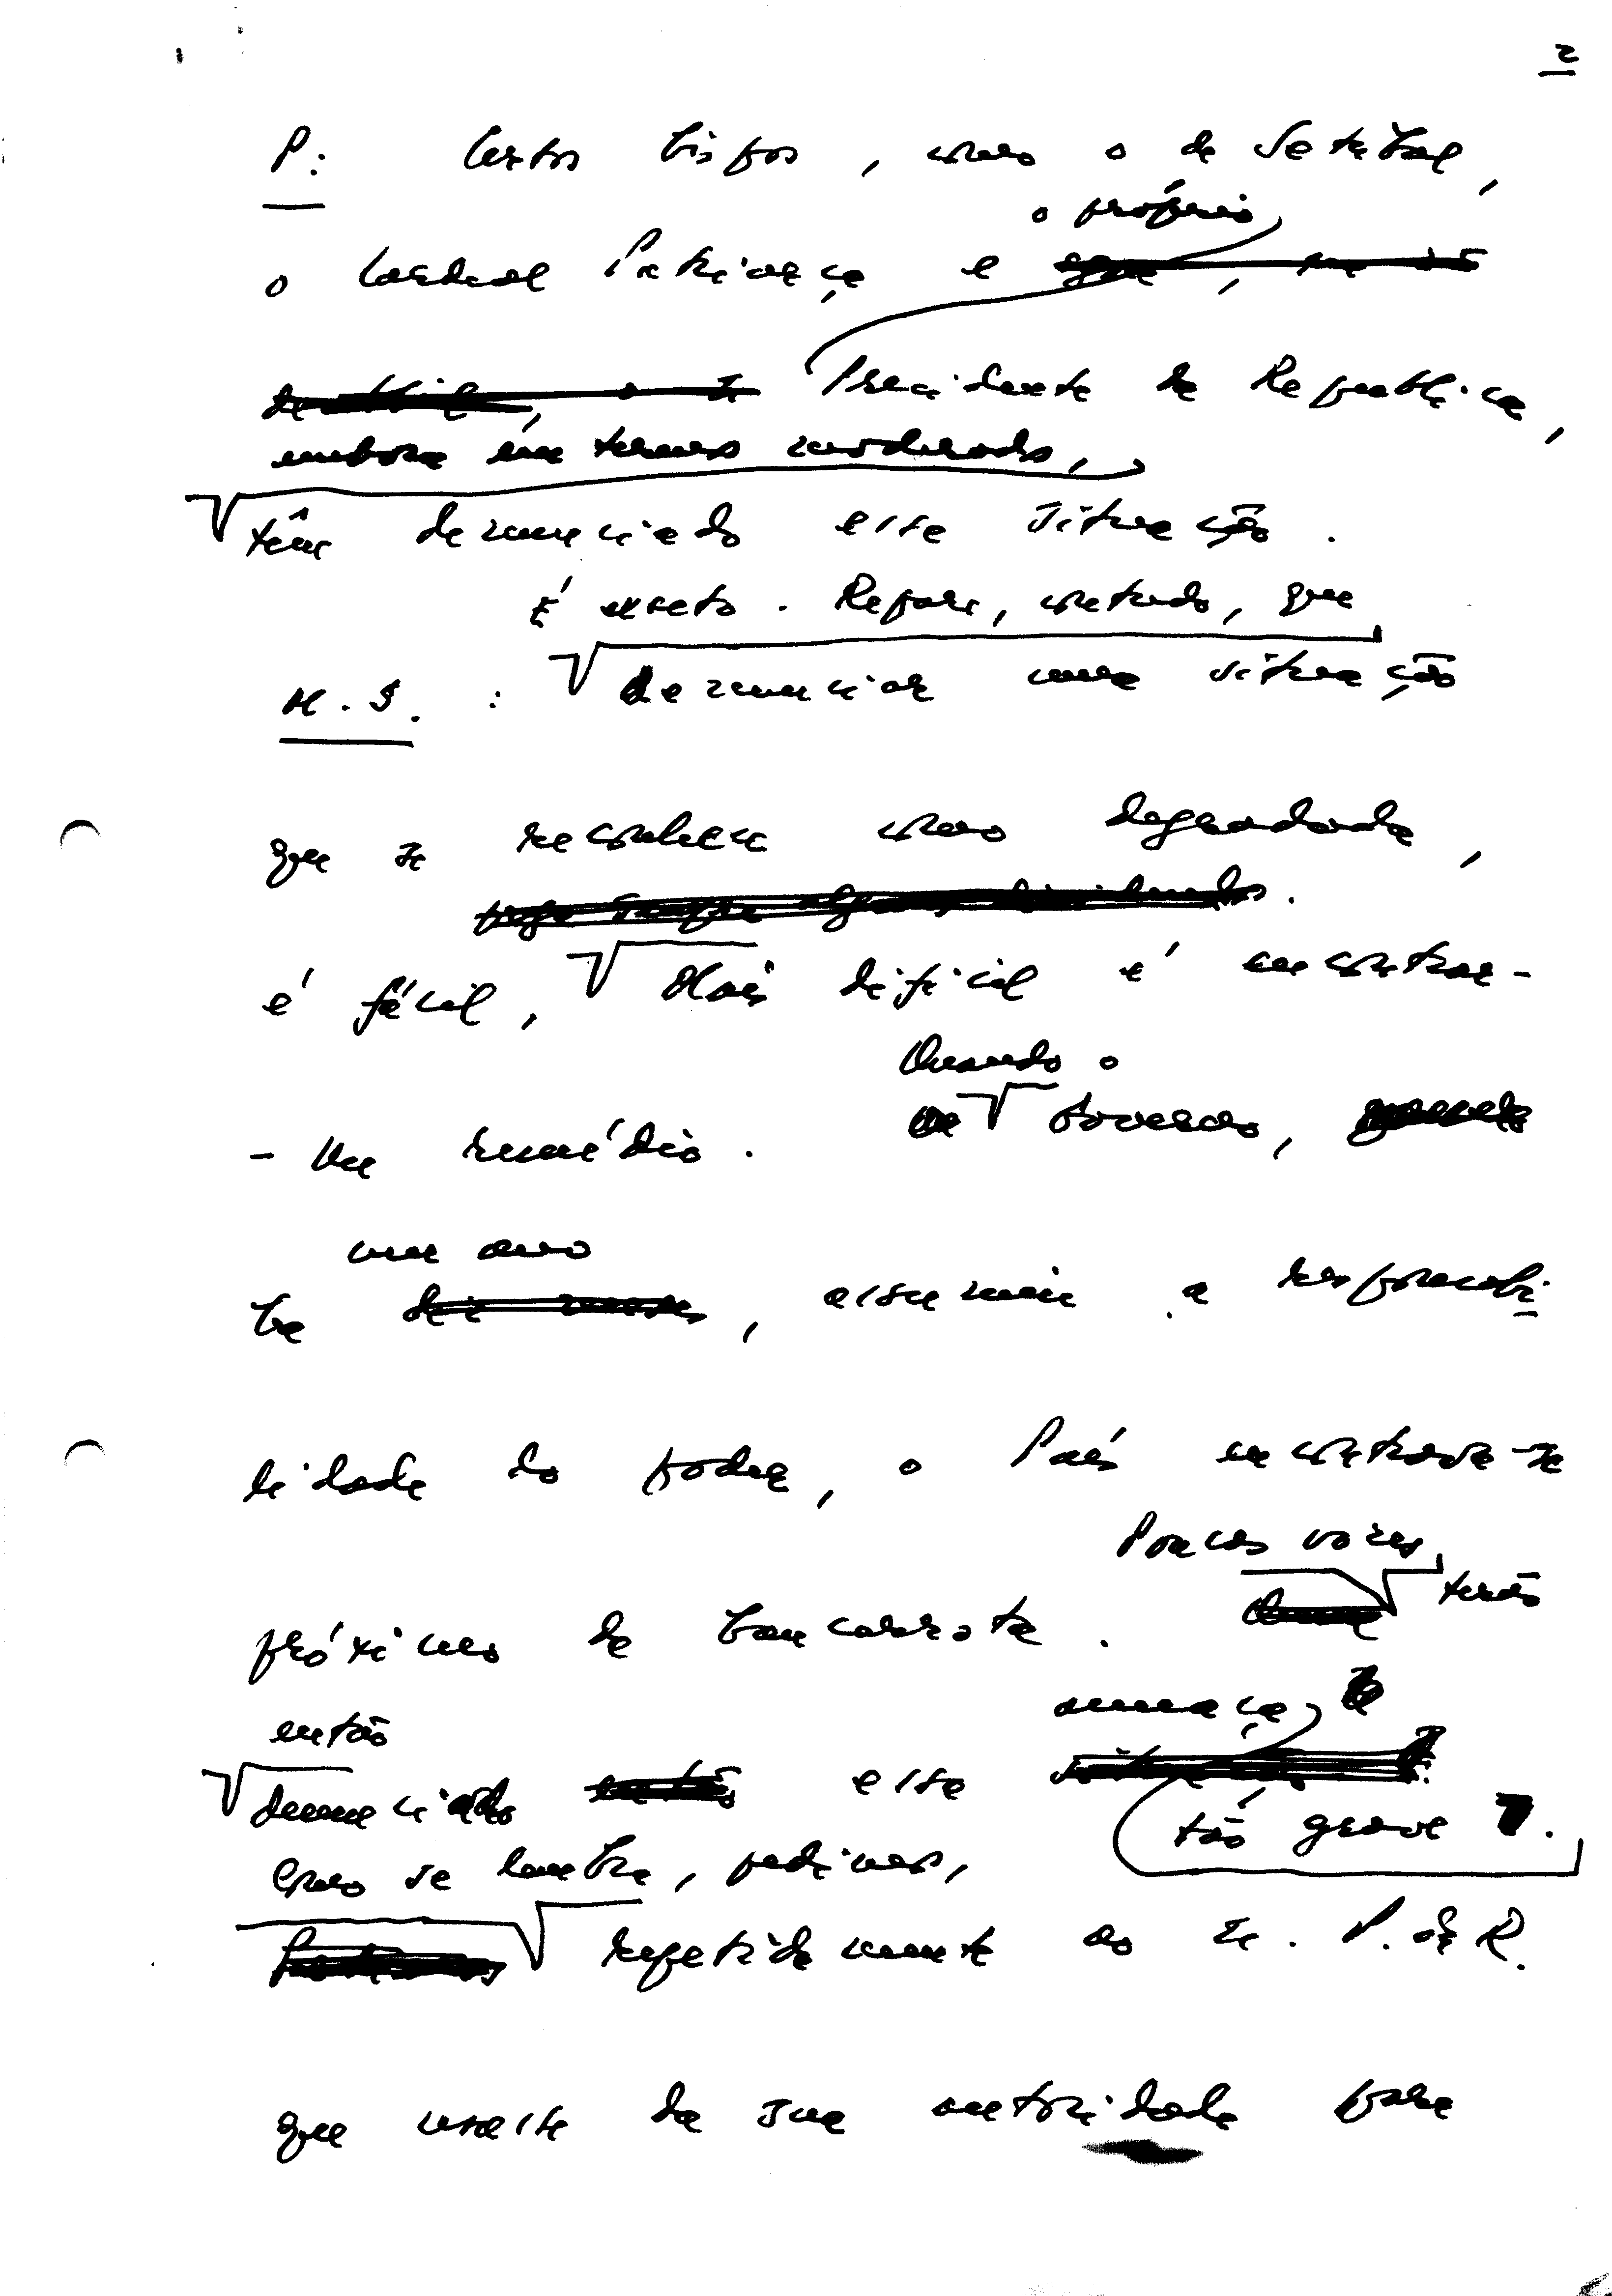 2
P: Certos bispos, como o de Setúbal,
o próprio
o Cardeal Patriarca e
Presidente da República,
embora em termos moderados,
têm denunciado essa situação.
É exacto. Repare, contudo, que
M.S.: denunciar uma situação
que se reconhece como degradada,
é fácil, Mais difícil é encontrar-
Quando o
-lhe remédio. Governo,
um ano
há, assumiu a responsabi-
lidade do poder, o País encontrava-se
Poucas vozes,
próximo da bancarrota. terão
ameaça,
então
denunciado essa
tão grave.
Como se lembra, pedimos,
repetidamente ao Sr. P. da R.
que usasse da sua autoridade para